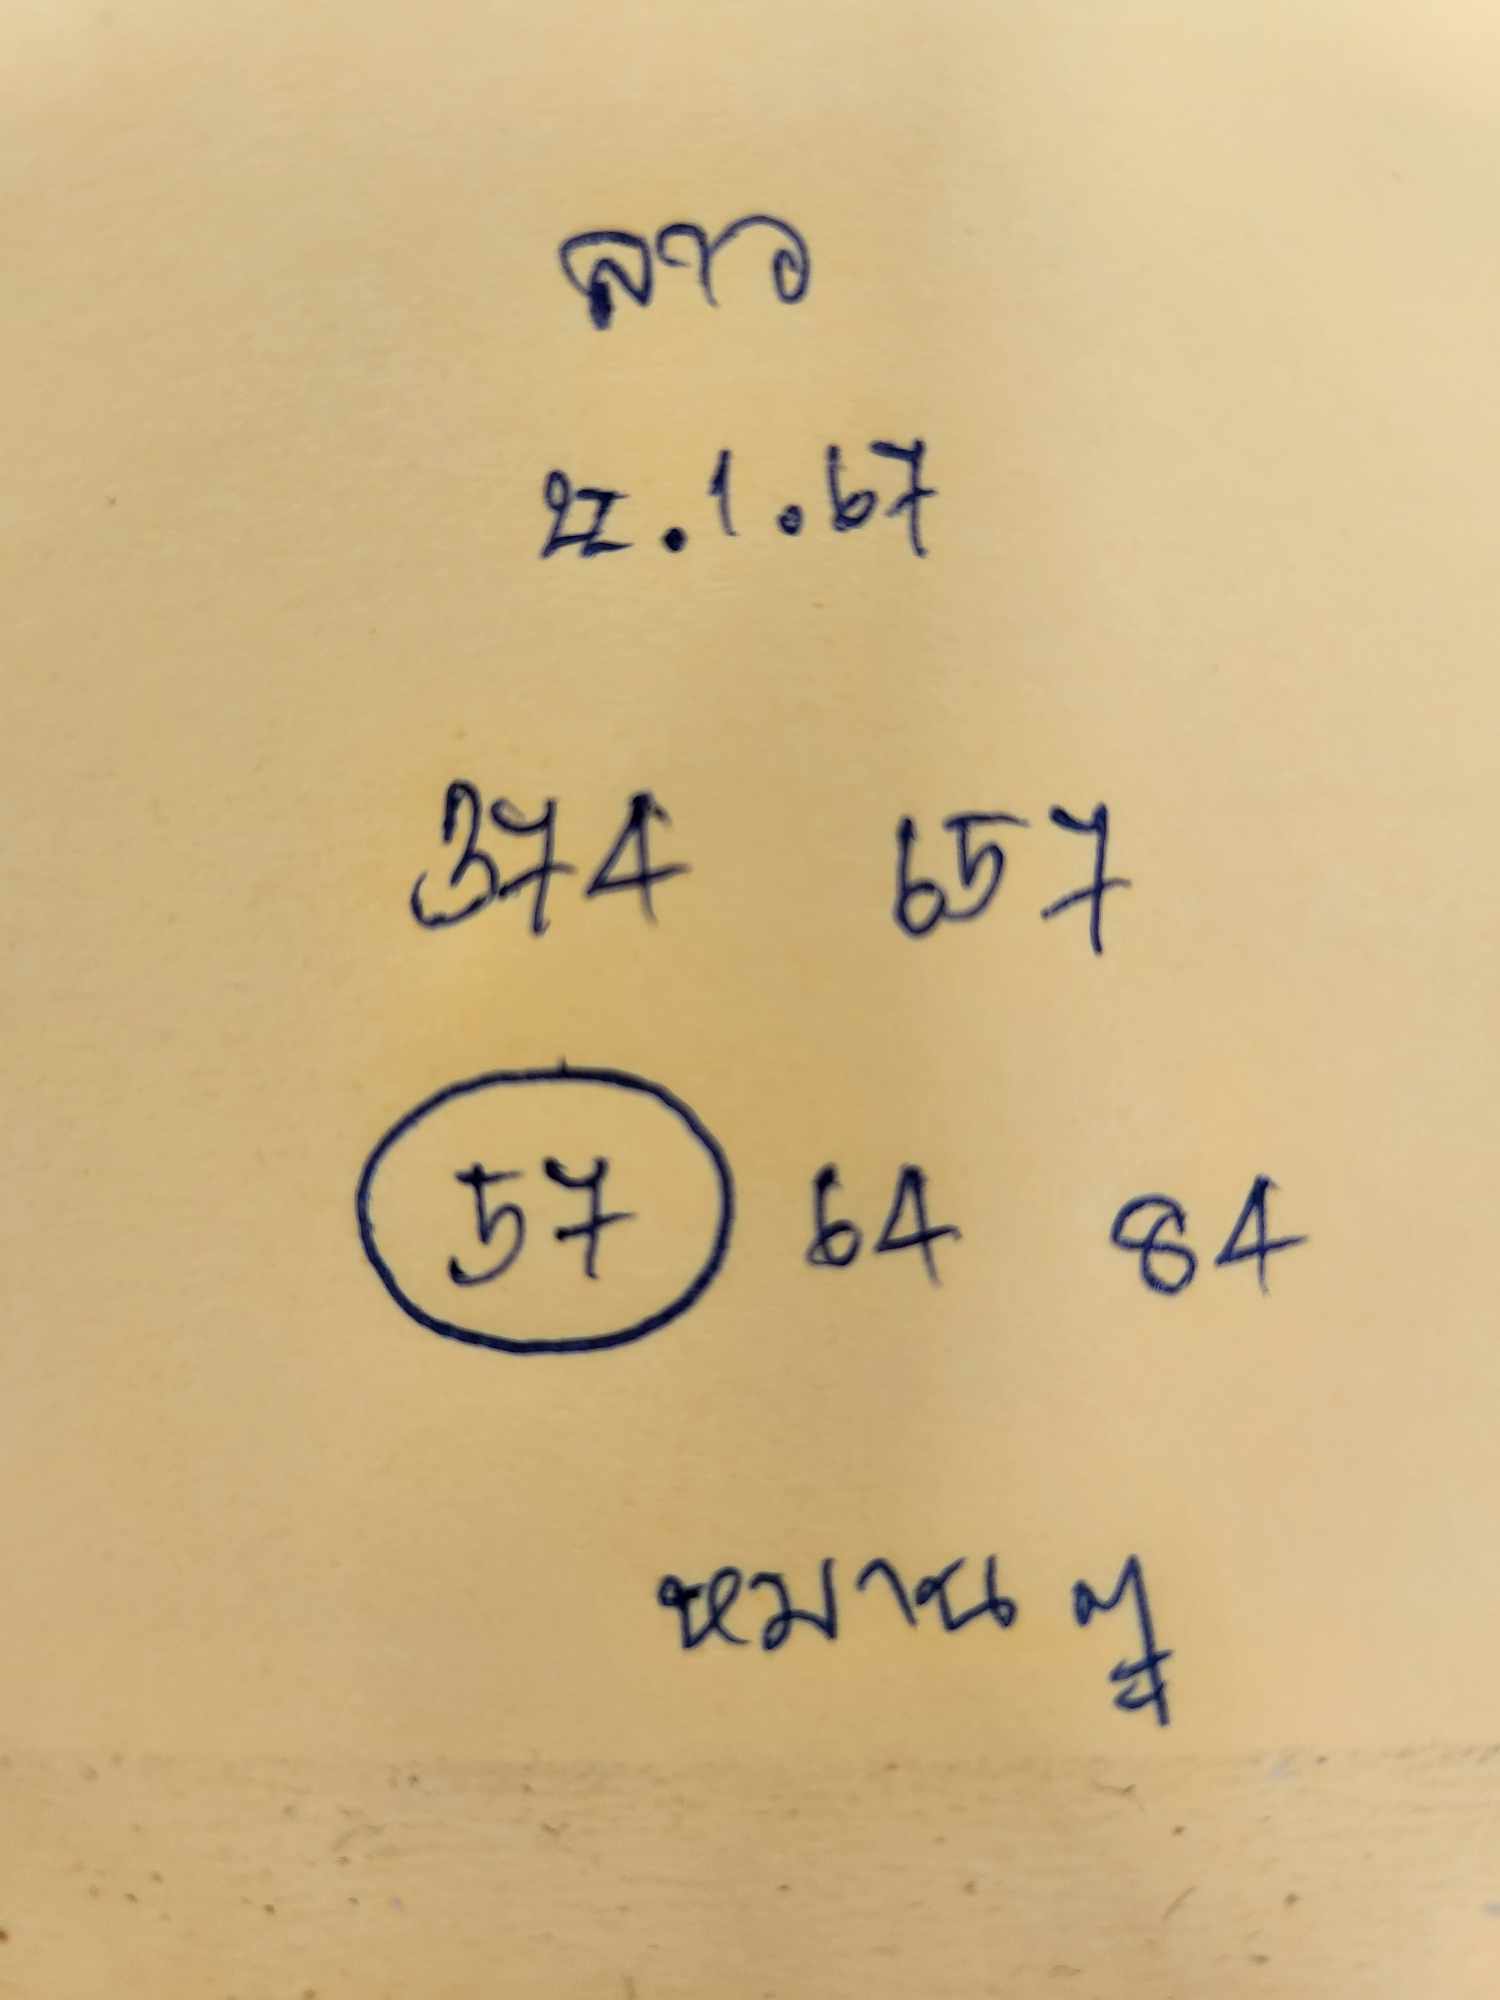 ลาว
22.1.67
374 657
57 64 84
หมาน ๆ